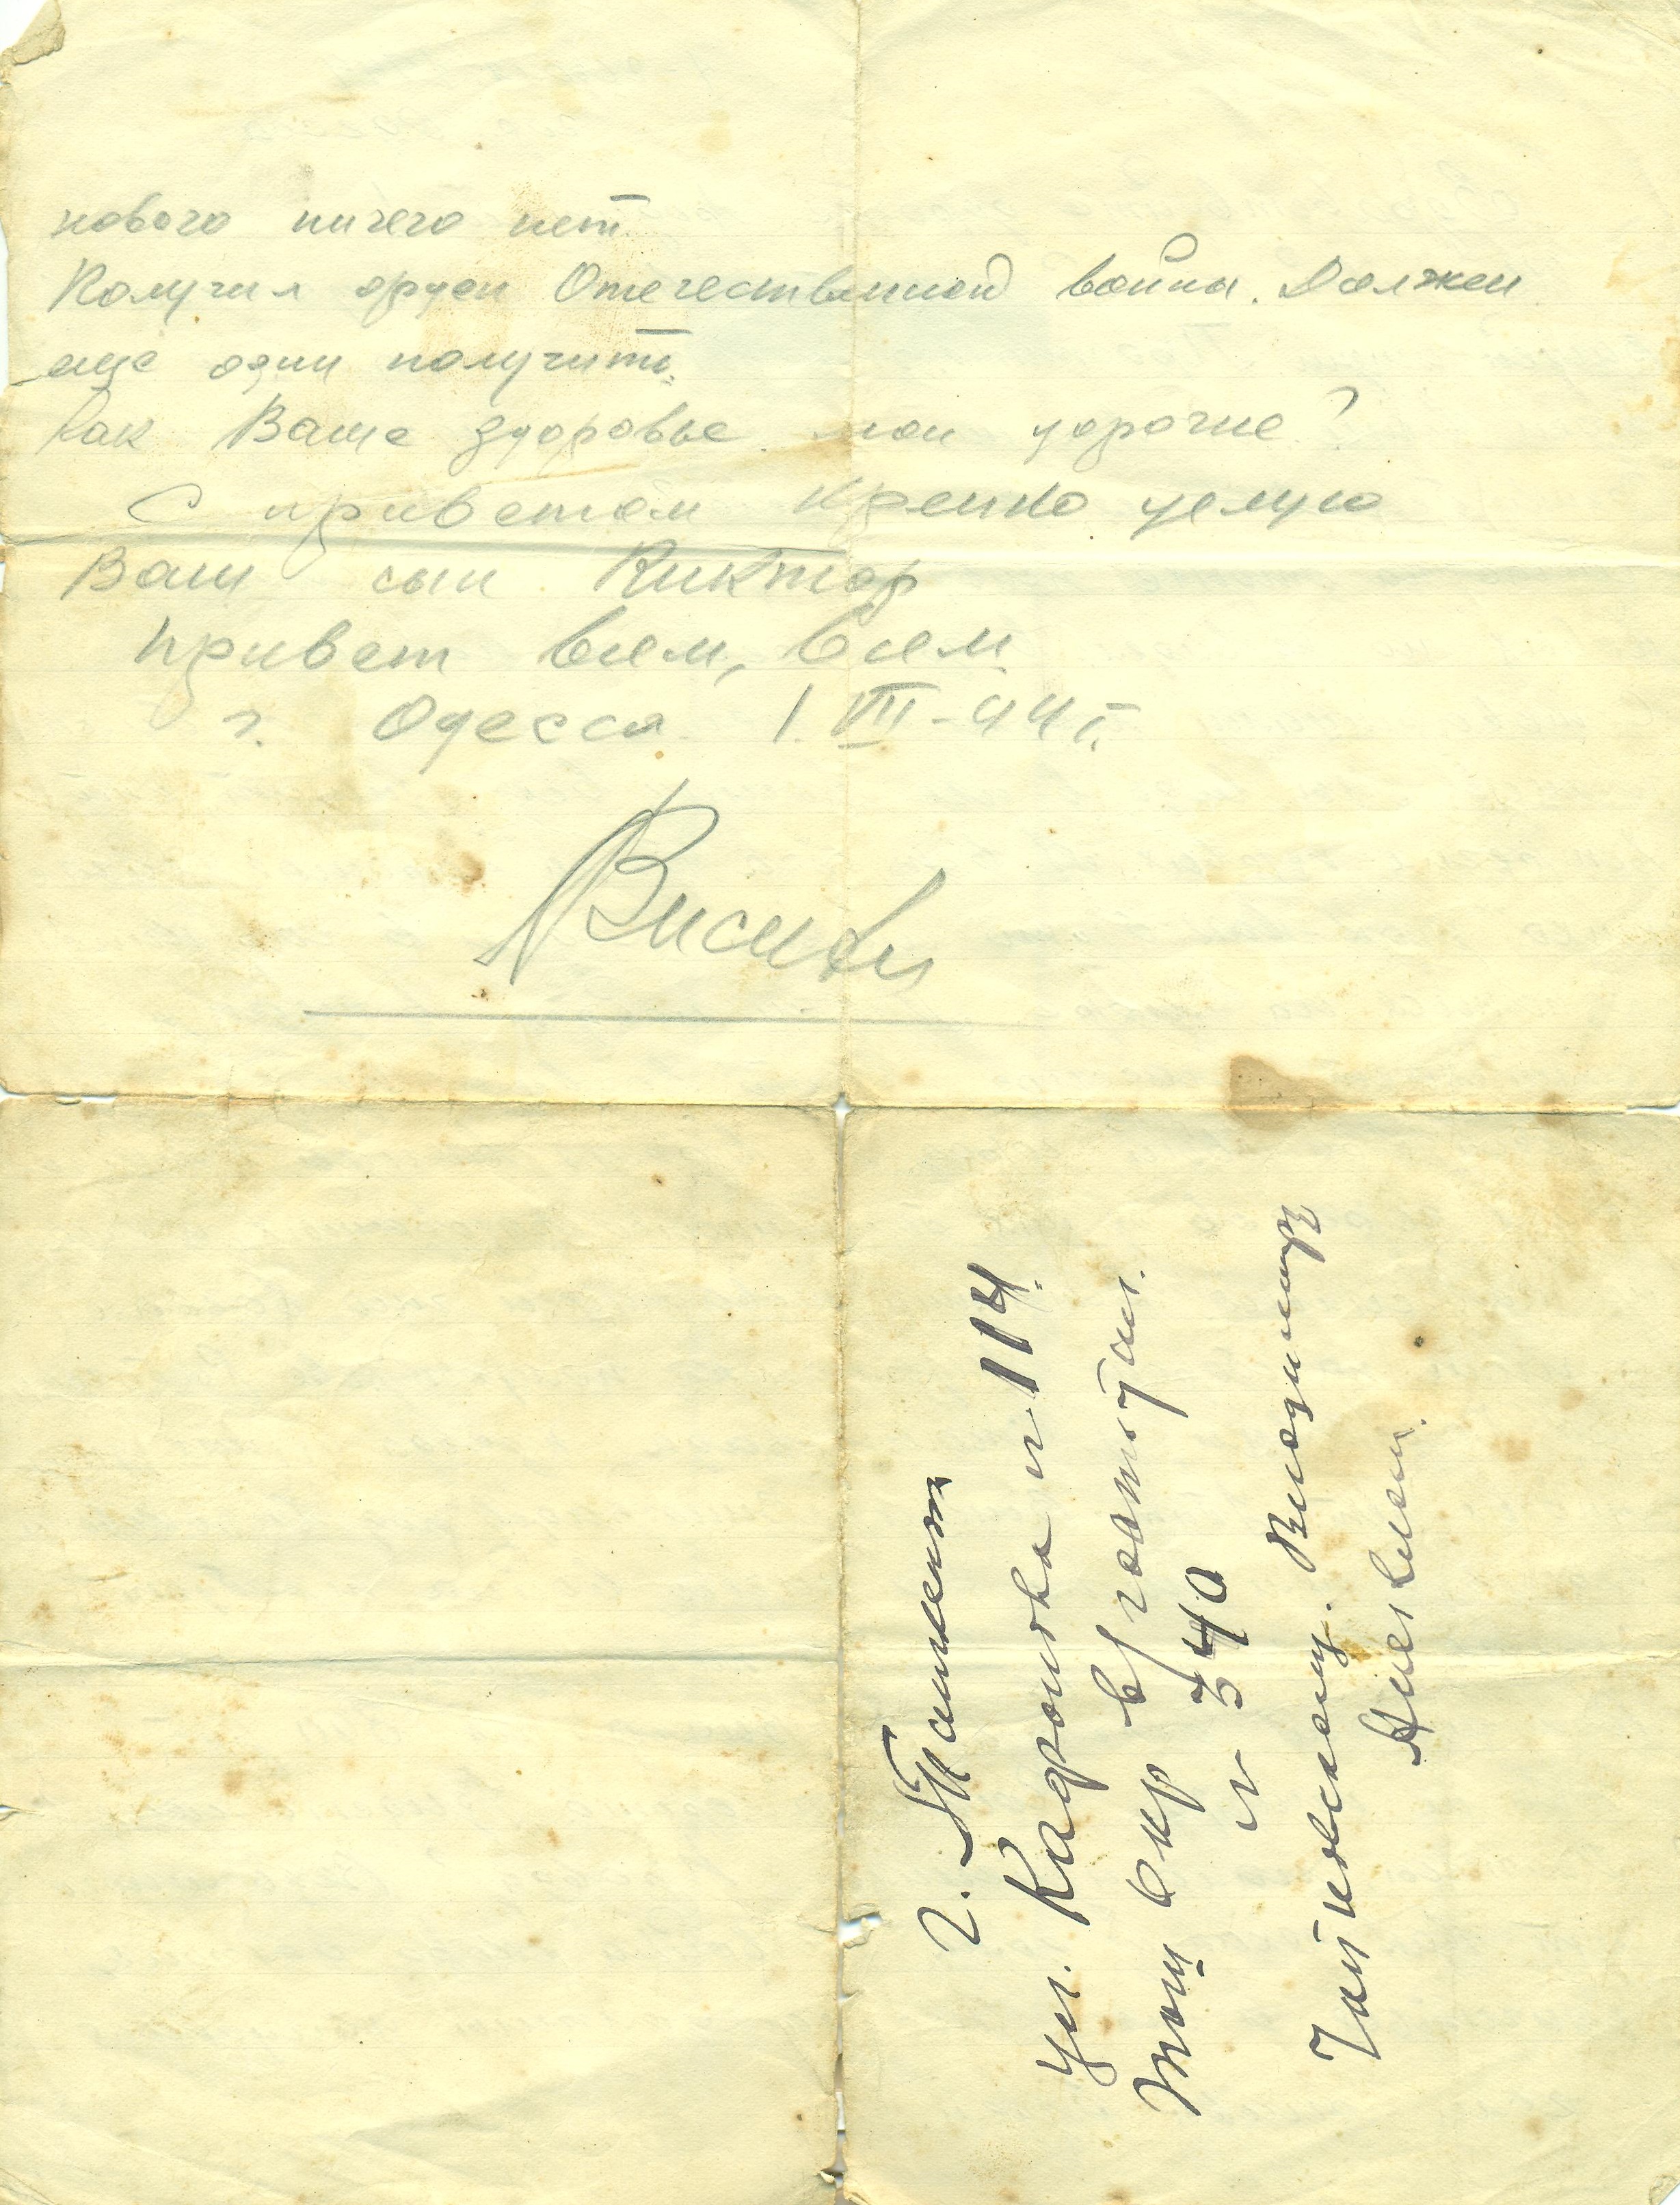 нового ничего нет.
Получил орден Отечественной войны. Должен
еще один получить.
Как Ваше здоровье мои дорогие?
С приветом крепко целую
Ваш сын Виктор
Привет всем, всем.
г. Одесса 1. VIII - 44 г.
г. Ташкент
ул. Кафанова № 114.
Таш окр в/госпиталь.
№ 340
Чайковскому. Владимиру